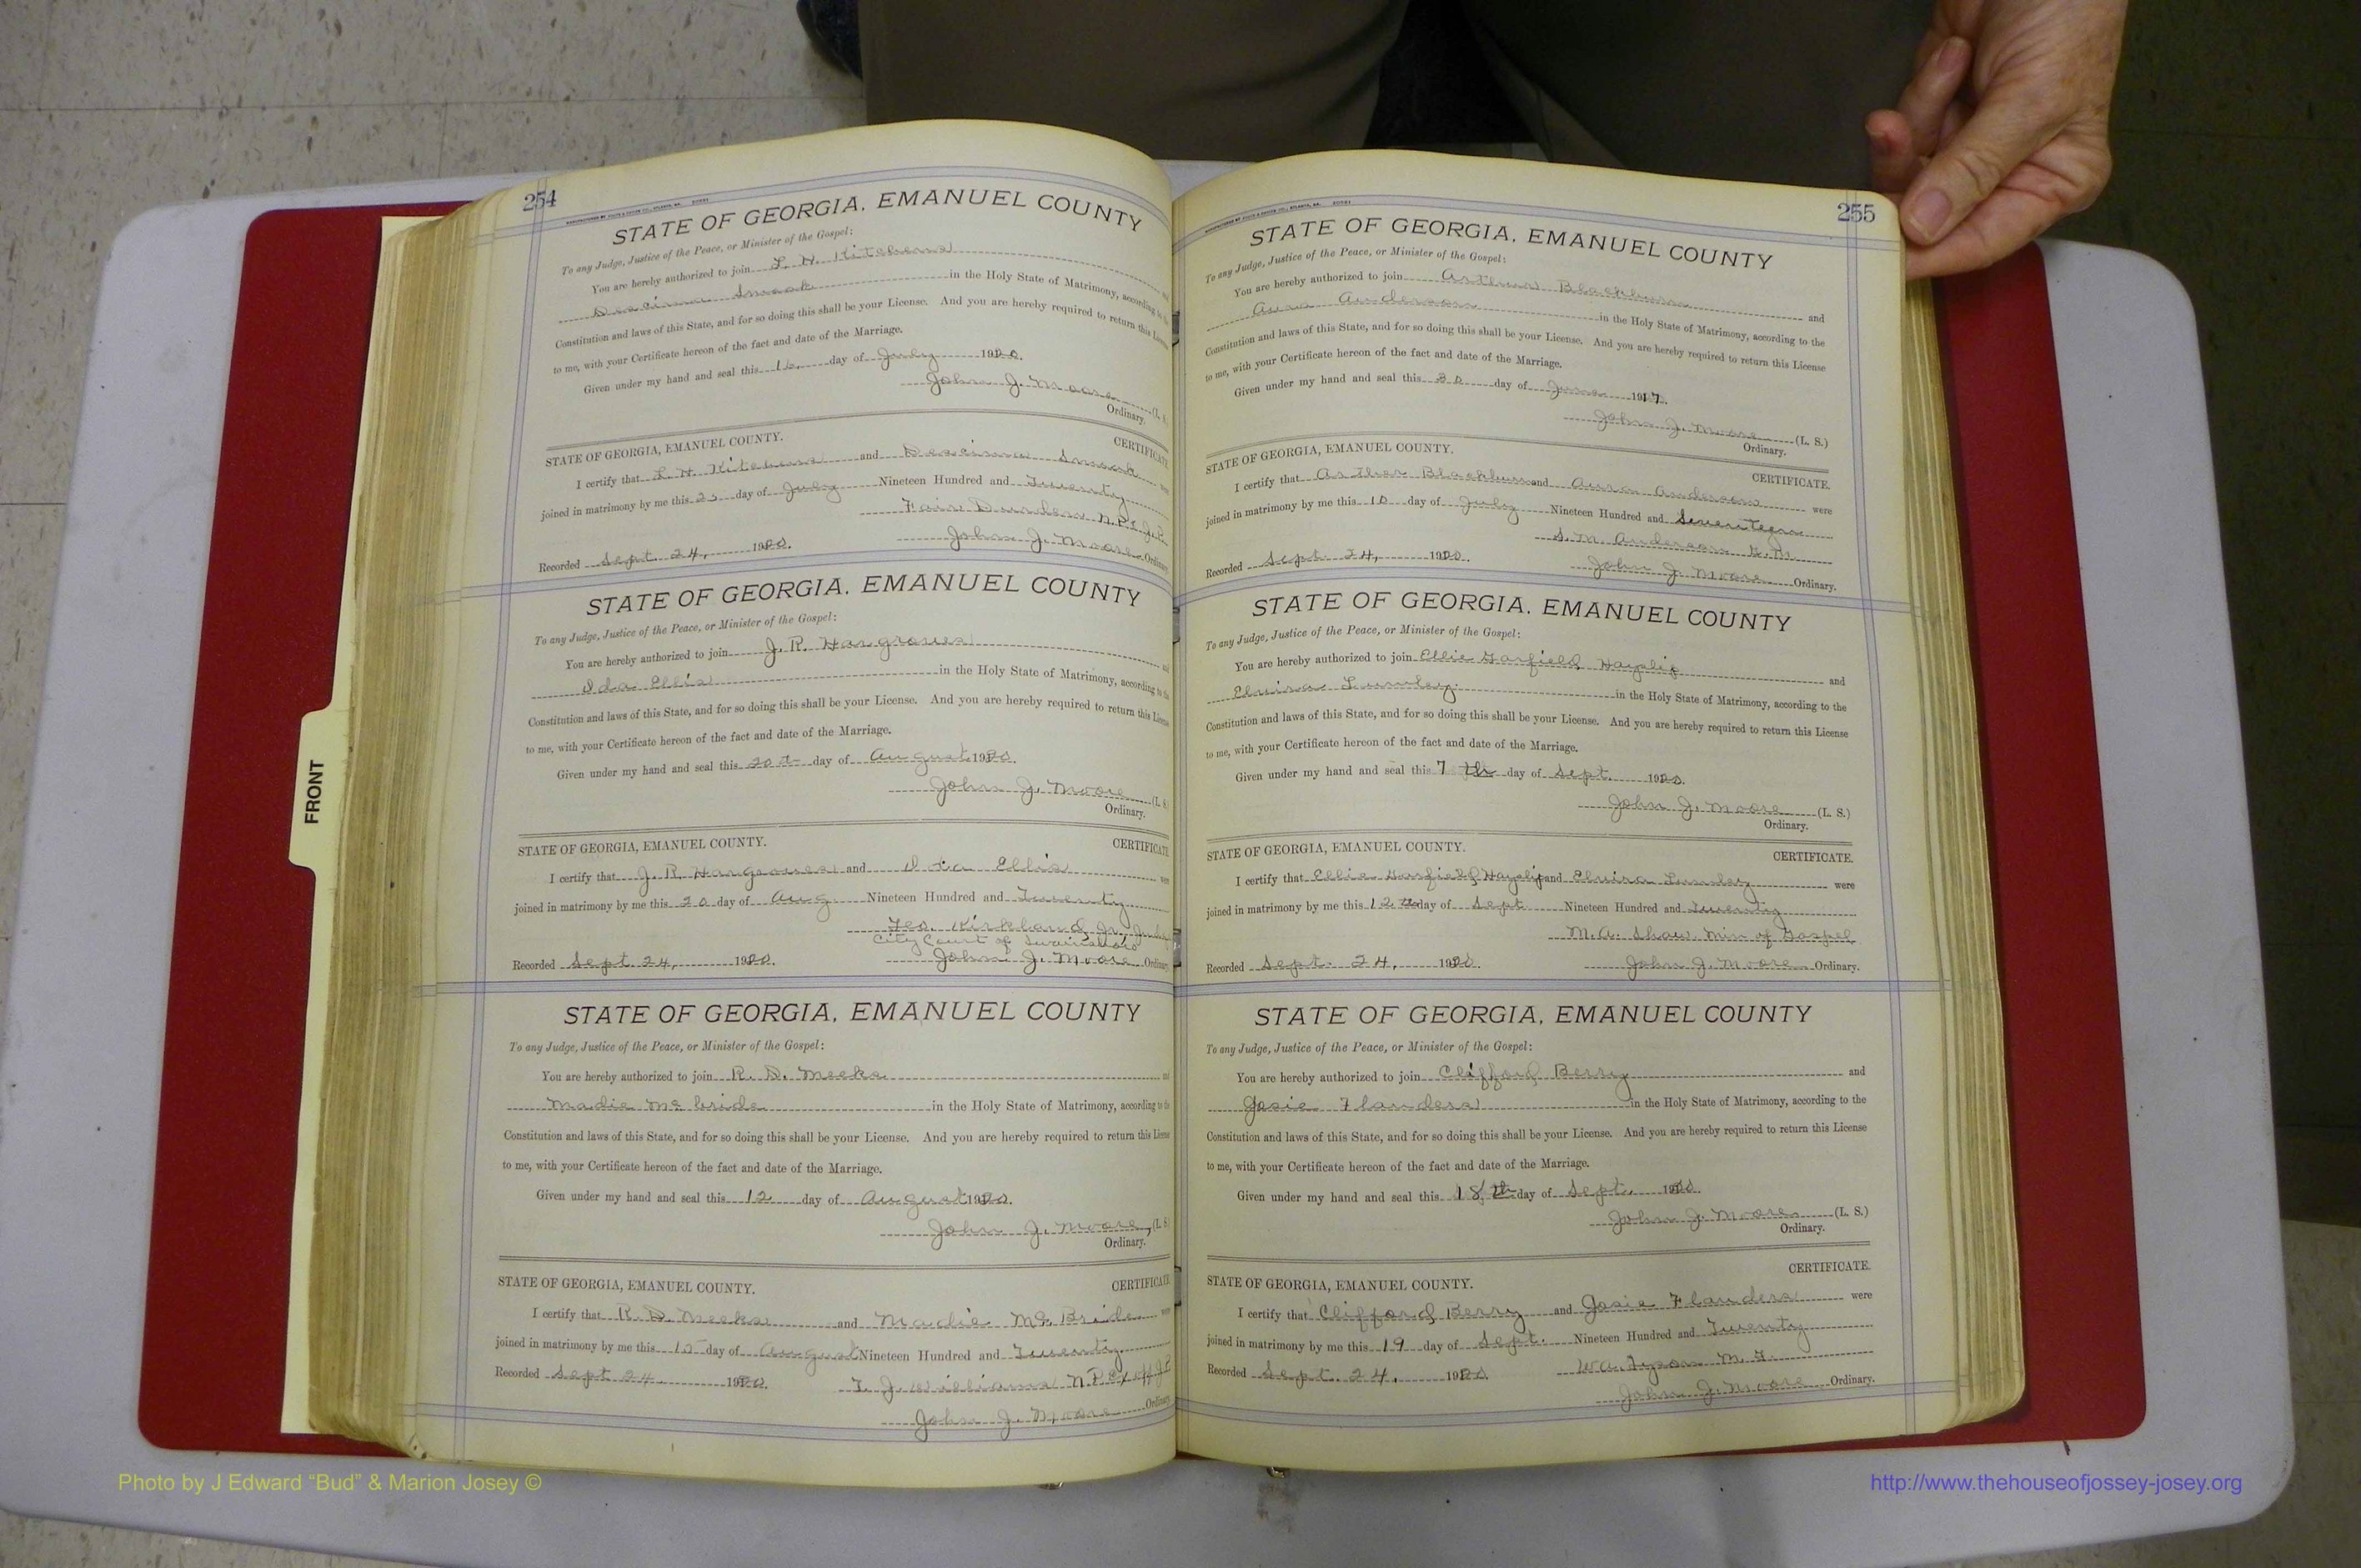 254
STATE OF GEORGIA, EMANUEL COUNTY
To any Judge, Justice of the Peace, or Minister of the Gospel:
You are hereby authorized to join L. H. Kitchens and
Decima Smook in the Holy State of Matrimony, according to the
Constitution and laws of this State, and for so doing this shall be your License. And you are hereby required to return this License
to me, with your Certificate hereon of the fact and date of the Marriage.
Given under my hand and seal this 16 day of July 1920.
John J. Moore (L. S.)
Ordinary.
STATE OF GEORGIA, EMANUEL COUNTY. CERTIFICATE
I certify that L. H. Kitchens and Decima were
joined in matrimony by me this day of July Nineteen Hundred and Twenty
Fair Durden N.P.& J.P.
Recorded Sept. 24, 1920. John J. Moore Ordinary
STATE OF GEORGIA, EMANUEL COUNTY
To any Judge, Justice of the Peace, or Minister of the Gospel:
You are hereby authorized to join J. R. Hargroves and
Ida Ellis in the Holy State of Matrimony, according to the
Constitution and laws of this State, and for so doing this shall be your License. And you are hereby required to return this License
to me, with your Certificate hereon of the fact and date of the Marriage.
Given under my hand and seal this 20th day of August 1920.
John J. Moore (L. S.)
Ordinary.
STATE OF GEORGIA, EMANUEL COUNTY. CERTIFICATE
I certify that J. R. Hargroves and Ida Ellis were
joined in matrimony by me this 20 day of Aug Nineteen Hundred and Twenty
Geo. Kirkland, Jr. Judge
City Court of Swainsboro
Recorded Sept. 24, 1920. John J. Moore Ordinary
STATE OF GEORGIA, EMANUEL COUNTY
To any Judge, Justice of the Peace, or Minister of the Gospel:
You are hereby authorized to join R. D. Meeks and
Madie Mc bride in the Holy State of Matrimony, according to the
Constitution and laws of this State, and for so doing this shall be your License. And you are hereby required to return this License
to me, with your Certificate hereon of the fact and date of the Marriage.
Given under my hand and seal this 12 day of August 1920.
John J. Moore, (L. S.
Ordinary.
STATE OF GEORGIA, EMANUEL COUNTY. CERTIFICATE
I certify that R. D. Meeks and Madie Mc Bride were
joined in matrimony by me this 15 day of August Nineteen Hundred and Twenty
Recorded Sept 24, 1920. T. J. Williams N.P. Ex off J.P.
John J. Moore Ordinary
255
STATE OF GEORGIA, EMANUEL COUNTY
To any Judge, Justice of the Peace, or Minister of the Gospel:
You are hereby authorized to join Arthur Blackburn and
Aura Anderson in the Holy State of Matrimony, according to the
Constitution and laws of this State, and for so doing this shall be your License. And you are hereby required to return this License
to me, with your Certificate hereon of the fact and date of the Marriage.
Given under my hand and seal this 30 day of June 1917.
John J. Moore (L. S.)
Ordinary.
STATE OF GEORGIA, EMANUEL COUNTY. CERTIFICATE.
I certify that Arthor Blackburn and Aura Anderson were
joined in matrimony by me this 10 day of July Nineteen Hundred and Seventeen
S. M. Anderson
Recorded Sept. 24, 1920. John J. Moore Ordinary.
STATE OF GEORGIA, EMANUEL COUNTY
To any Judge, Justice of the Peace, or Minister of the Gospel:
You are hereby authorized to join Ellie Garfield Hayslip and
Elvira Lumley in the Holy State of Matrimony, according to the
Constitution and laws of this State, and for so doing this shall be your License. And you are hereby required to return this License
to me, with your Certificate hereon of the fact and date of the Marriage.
Given under my hand and seal this 7th day of Sept. 1920.
John J. Moore (L. S.)
Ordinary.
STATE OF GEORGIA, EMANUEL COUNTY. CERTIFICATE.
I certify that Ellie Garfield Hayslip and Elvira Lumley were
joined in matrimony by me this 12th day of Sept Nineteen Hundred and Twenty
M.A. Shaw. Min of Gospel
Recorded Sept. 24, 1920. John J. Moore Ordinary.
STATE OF GEORGIA, EMANUEL COUNTY
To any Judge, Justice of the Peace, or Minister of the Gospel:
You are hereby authorized to join Clifford Berry and
Josie Flanders in the Holy State of Matrimony, according to the
Constitution and laws of this State, and for so doing this shall be your License. And you are hereby required to return this License
to me, with your Certificate hereon of the fact and date of the Marriage.
Given under my hand and seal this 18th day of Sept. 1920.
John J. Moore (L. S.)
Ordinary.
STATE OF GEORGIA, EMANUEL COUNTY. CERTIFICATE.
I certify that Clifford Berry and Josie Flanders were
joined in matrimony by me this 19 day of Sept. Nineteen Hundred and Twenty
Recorded Sept. 24, 1920. W.A. Tyson M. G.
John J. Moore Ordinary.
FRONT
Photo by J Edward “Bud” & Marion Josey ©
http://www.thehouseofjossey-josey.org